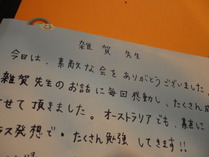 雑賀 先生
今日は、素敵な会をありがとうございました
雑賀先生のお話に毎回感動し、たくさん
せて頂きました。オーストラリアでも、
ス発想で・たくさん勉強してきます!!